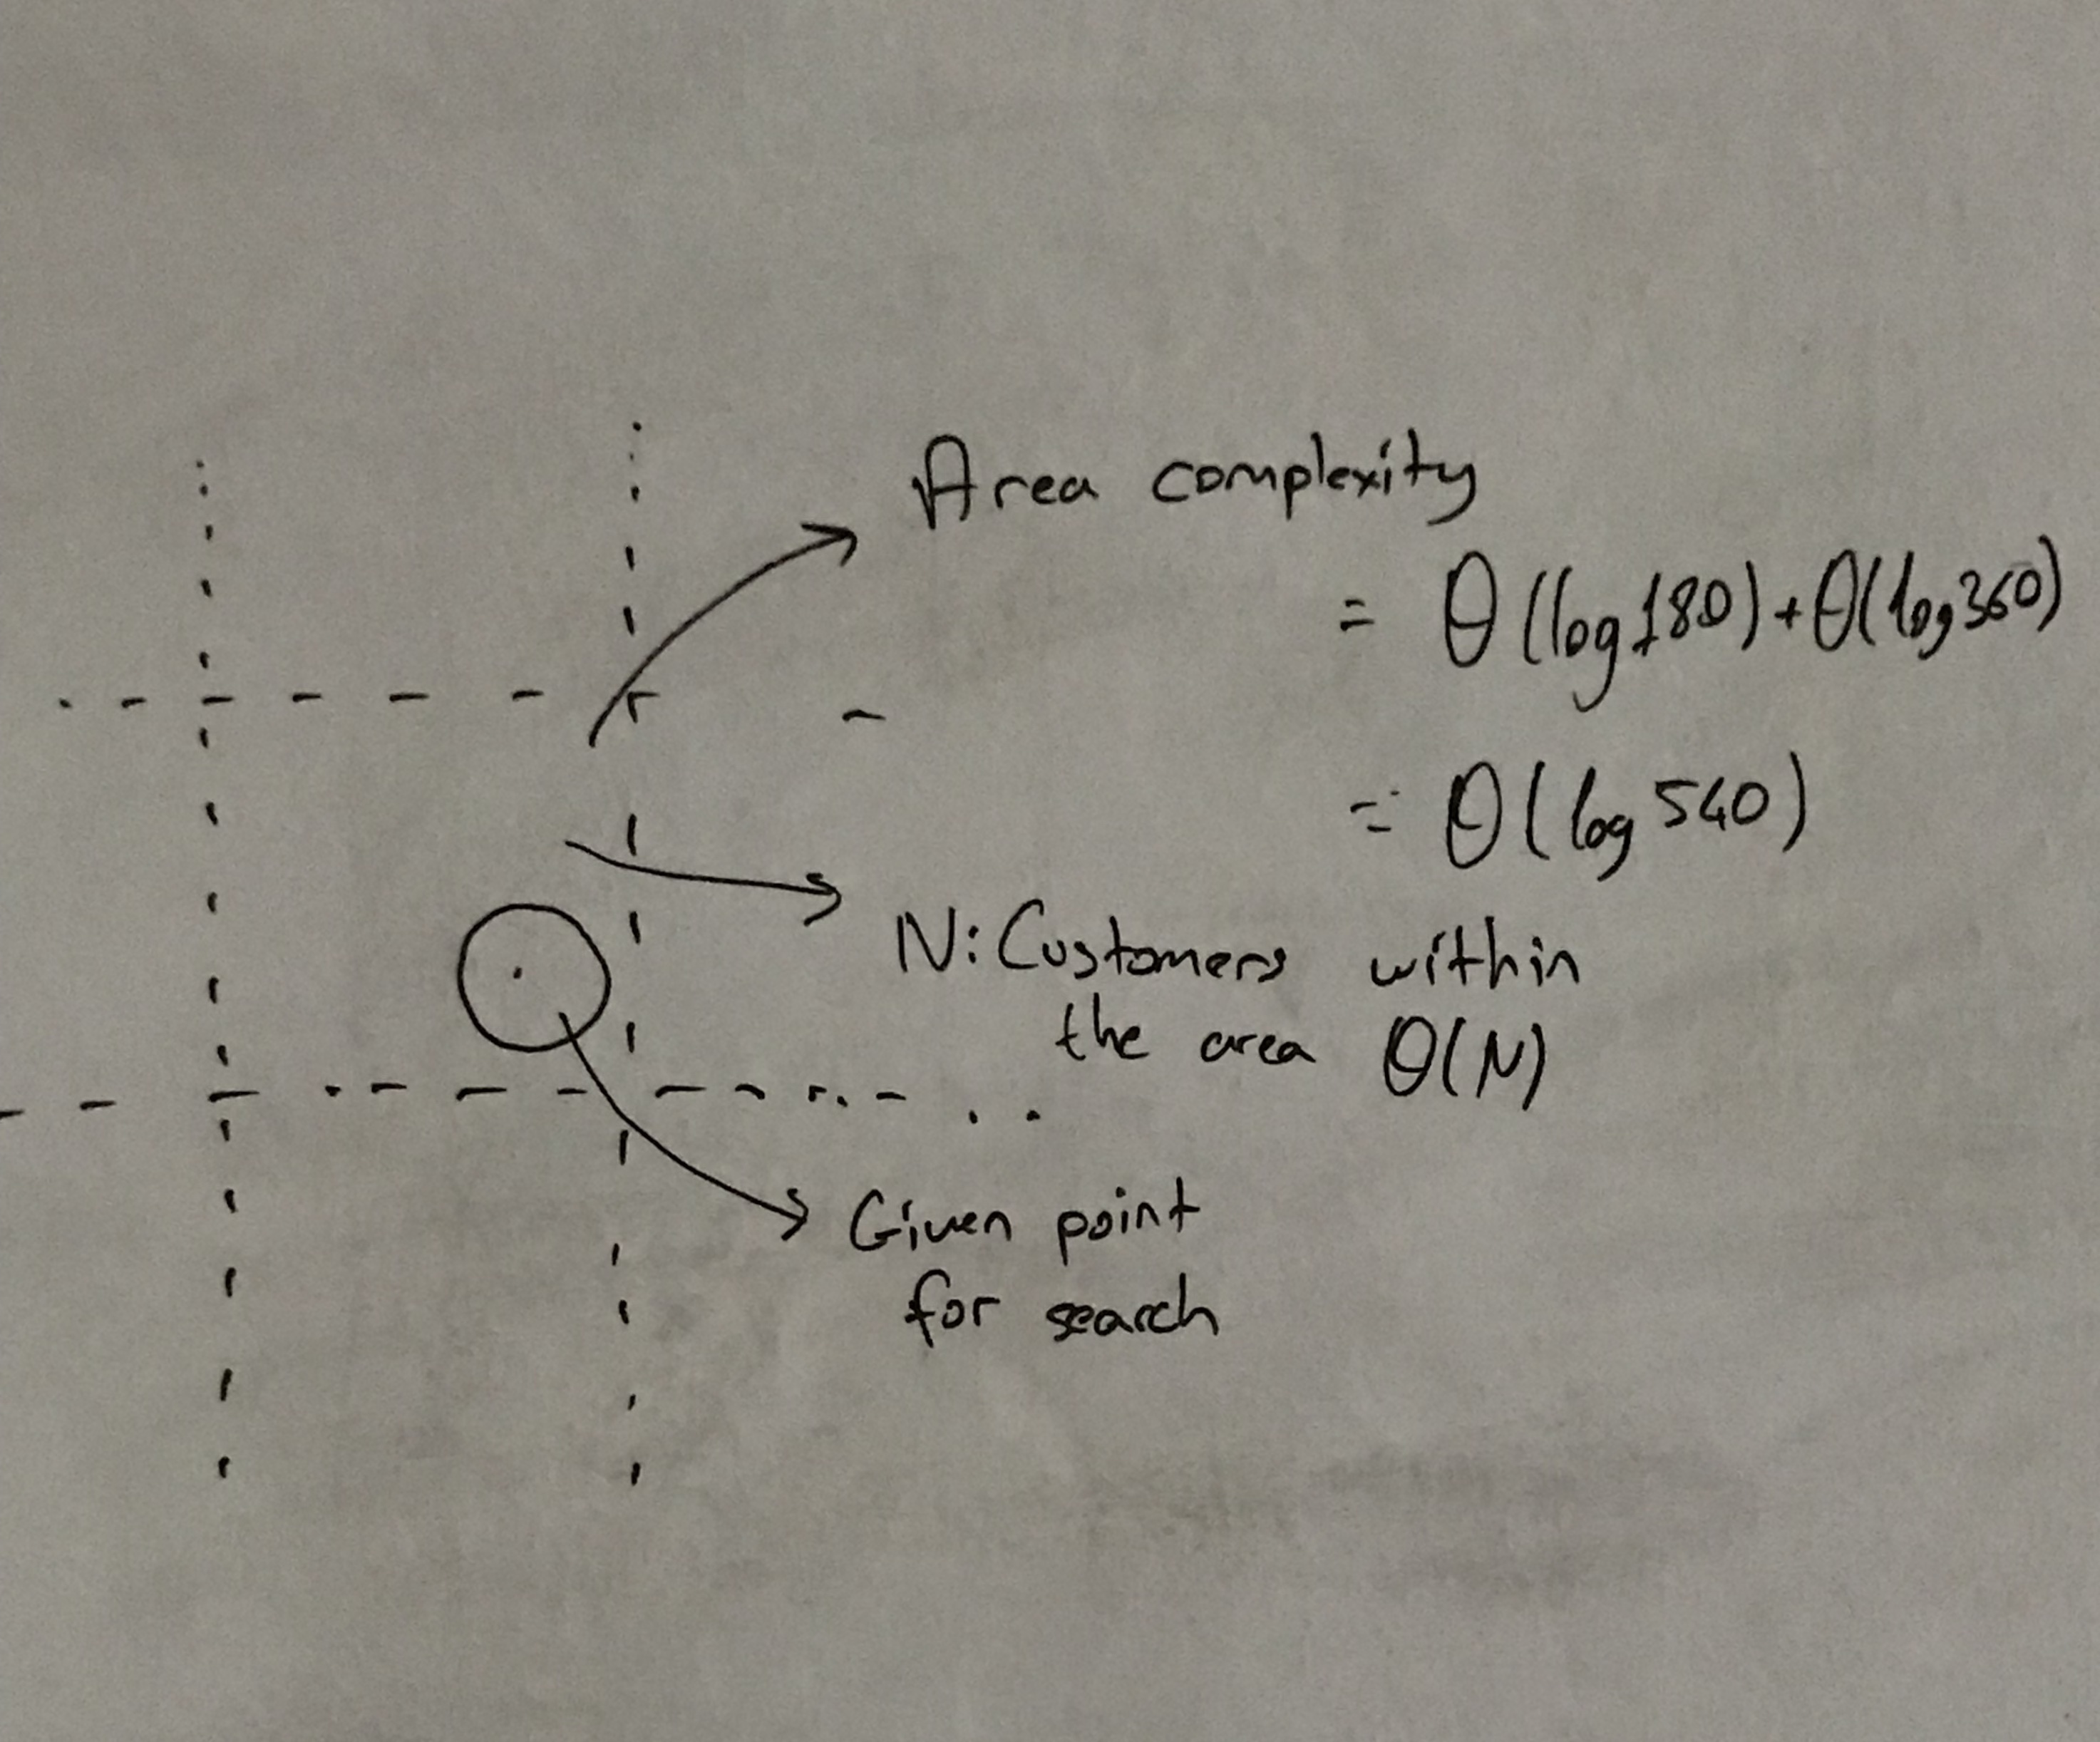 Area complexity
= θ(log180)+θ(log360)
= θ(log 540)
N: Customers within
the area θ(N)
Given point
for search